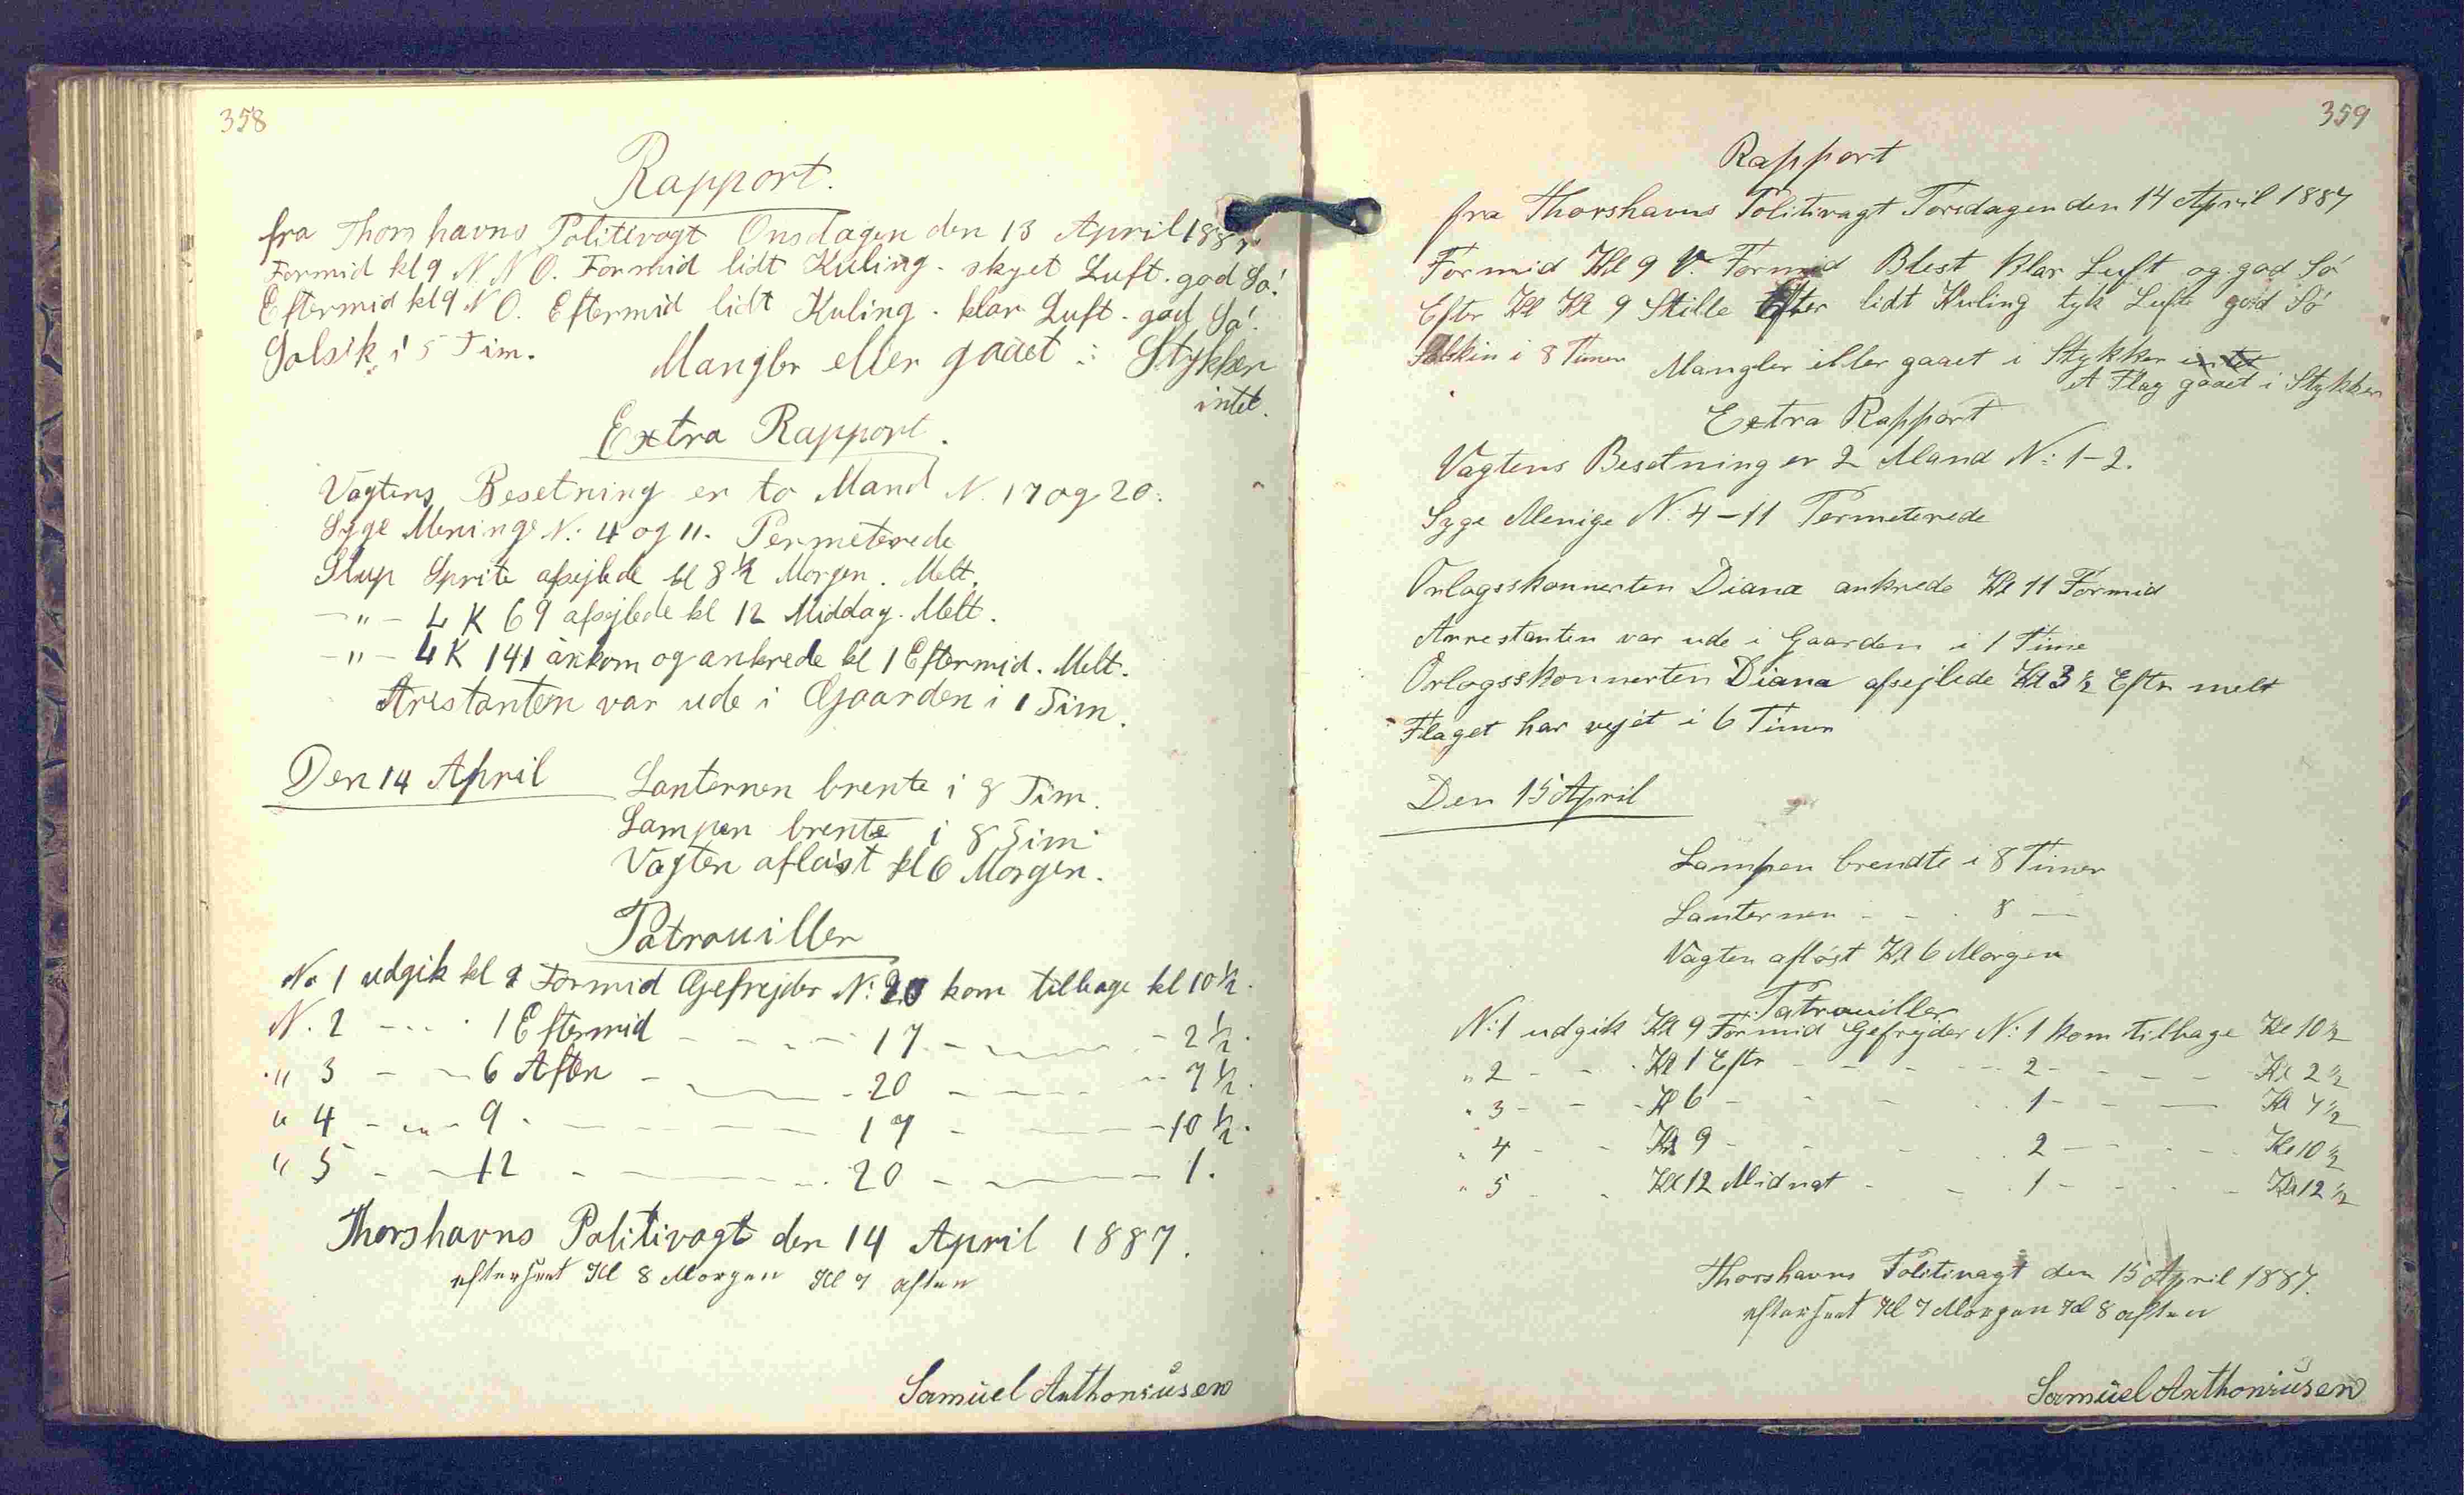 358
Rapport.
fra Thorshavns Politivagt Onsdagen den 13 April 1887
Formid kl 9 N N O. Formid lidt Kuling. skyet Luft. god Sö!
Eftermid kl 9 N O. Eftermid lidt Kuling. klar Luft. god Sö!
Solsik i 5 Tim. Mangler eller gaaet i Stykker
intet.
Extra Rapport.
Vagtens Besetning er to Mand N. 17 og 20.
Syge Meninge N: 4 og 11. Permeterede
Slup Sprite afsejlede kl 8 ½ Morgen. Melt.
—"— L K 69 afsejlede kl 12 Middag. Melt.
—"— L K 141 ankom og ankrede kl 1 Eftermid. Melt.
Arestanten var ude i Gaarden i 1 Tim.
Den 14 April Lanternen brente i 8 Tim.
Lampen brente i 8 Tim
Vagten aflöst kl 6 Morgen.
Patrouiller
No 1 udgik kl 9 Formid Gefrejder N: 20 kom tilbage kl 10 ½.
N. 2 - - - 1 Eftermid - - - 17 - - - 2 ½.
" 3 - - 6 Aften - - - 20 - - - 7 ½.
" 4 - - 9 - - - 17 - - - 10 ½.
" 5 - - 12 - - - 20 - - - 1.
Thorshavns Politivagt den 14 April 1887.
efterseet Kl 8 Morgen Kl 7 aften
Samuel Anthoniusen
359
Rapport
fra Thorshavns Politivagt Torsdagen den 14 April 1887
Formid Kl 9 V. Formid Blest klar Luft og god Sö
Efter Kl Kl 9 Stille Efter lidt Kuling tyk Luft god Sö
Solskin i 8 Timer Mangler eller gaaet i Stykker intet
et Flag gaaet i Stykker
Extra Rapport
Vagtens Besetning er 2 Mand N: 1-2.
Syge Menige N. 4-11 Permeterede
Orlogsskonnerten Diana ankrede Kl 11 Formid
Arrestanten var ude i Gaarden i 1 Time
Orlogsskonnerten Diana afsejlede Kl 3 ½ Eftr melt
Flaget har vejet i 6 Timer
Den 15 April
Lampen brendte i 8 Timer
Lanternen - - - 8 —
Vagten aflöst Kl 6 Morgen
Patrouiller
N: 1 udgik Kl 9 Formid Gefrejder N: 1 kom tilbage Kl 10 ½
" 2 - - - Kl 1 Eftr - - - 2 - - - Kl 2 ½
" 3 - - - Kl 6 - - - 1 - - - Kl 7 ½
" 4 - - - Kl 9 - - - 2 - - - Kl 10 ½
" 5 - - - Kl 12 Midnat - - - 1 - - - Kl 12 ½
Thorshavns Politivagt den 15 April 1887.
efterseet Kl 7 Morgen Kl 8 aften
Samuel Anthoniusen